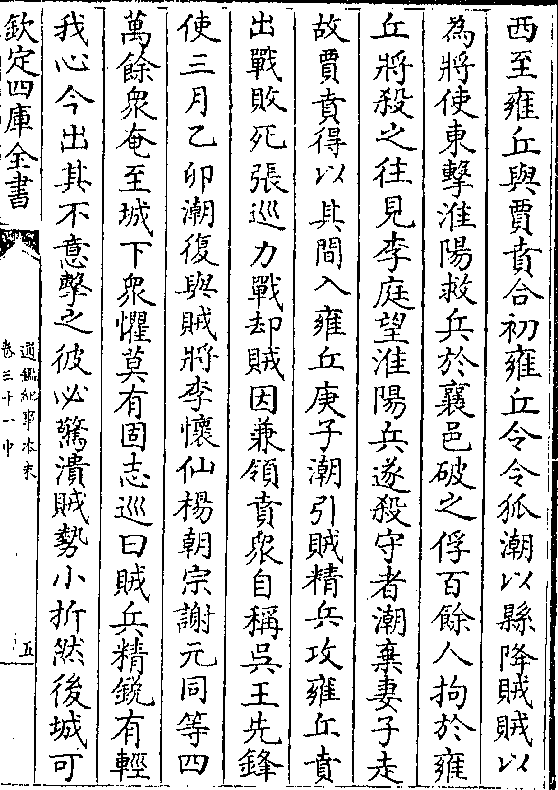 西至雍丘與賈賁合初雍丘令令狐潮以縣降賊賊以
為將使東擊淮陽救兵於襄邑破之俘百餘人拘於雍
丘將殺之往見李庭望淮陽兵遂殺守者潮棄妻子走
故賈賁得以其間入雍丘庚子潮引賊精兵攻雍丘賁
出戰敗死張巡力戰却賊因兼領賁衆自稱吳王先鋒
使三月乙卯潮復與賊將李懷仙楊朝宗謝元同等四
萬餘衆奄至城下衆懼莫有固志巡曰賊兵精銳有輕
我心今出其不意擊之彼必驚潰賊勢小折然後城可
欽定四庫全書
通鑑紀事本末
卷三十一中
五